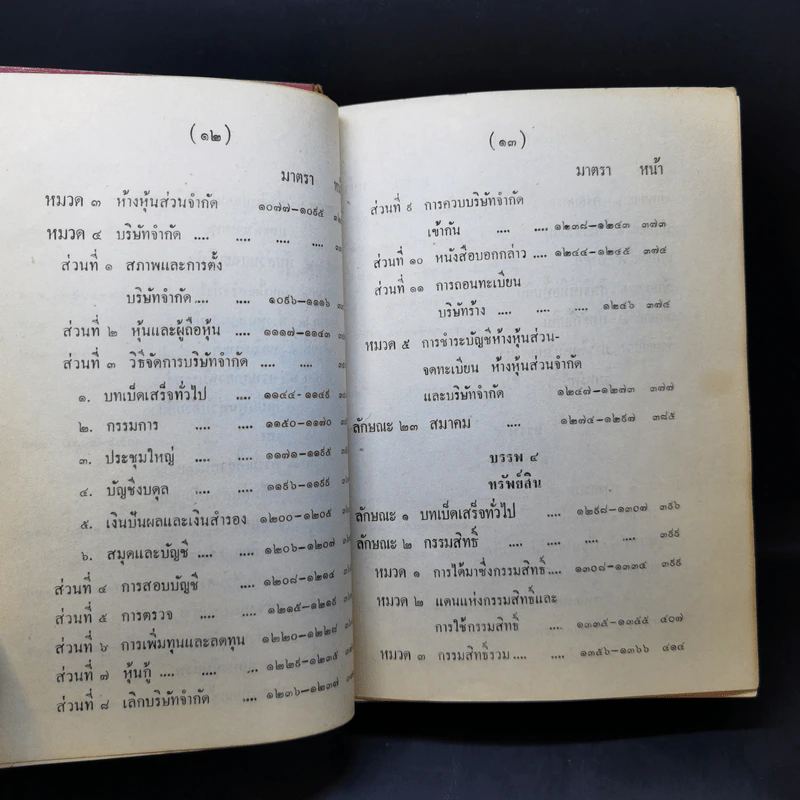 (๑๒)
มาตรา
หมวด ๓ ห้างหุ้นส่วนจำกัด ๑๐๗๗-๑๐๙๕
หมวด ๔ บริษัทจำกัด .... .... .... ....
ส่วนที่ ๑ สภาพและการตั้ง
บริษัทจำกัด .... .... ๑๐๙๖-๑๑๑๖
ส่วนที่ ๒ หุ้นและผู้ถือหุ้น .... ๑๑๑๗-๑๑๔๓
ส่วนที่ ๓ วิธีจัดการบริษัทจำกัด .... ....
๑. บทเบ็ดเสร็จทั่วไป .... ๑๑๔๔-๑๑๔๙
๒. กรรมการ .... .... ๑๑๕๐-๑๑๗๐
๓. ประชุมใหญ่ .... .... ๑๑๗๑-๑๑๙๕
๔. บัญชีงบดุล .... .... ๑๑๙๖-๑๑๙๙
๕. เงินปันผลและเงินสำรอง ๑๒๐๐-๑๒๐๕
๖. สมุดและบัญชี .... .... ๑๒๐๖-๑๒๐๗
ส่วนที่ ๔ การสอบบัญชี .... ๑๒๐๘-๑๒๑๔
ส่วนที่ ๕ การตรวจ .... .... ๑๒๑๕-๑๒๑๙
ส่วนที่ ๖ การเพิ่มทุนและลดทุน ๑๒๒๐-๑๒๒๘
ส่วนที่ ๗ หุ้นกู้ .... .... .... ๑๒๒๙-๑๒๓๕
ส่วนที่ ๘ เลิกบริษัทจำกัด .... ๑๒๓๖-๑๒๓๗
(๑๓)
มาตรา หน้า
ส่วนที่ ๙ การควบบริษัทจำกัด
เข้ากัน .... .... ๑๒๓๘-๑๒๔๓ ๓๗๓
ส่วนที่ ๑๐ หนังสือบอกกล่าว .... ๑๒๔๔-๑๒๔๕ ๓๗๔
ส่วนที่ ๑๑ การถอนทะเบียน
บริษัทร้าง .... .... ๑๒๔๖ ๓๗๔
หมวด ๕ การชำระบัญชีห้างหุ้นส่วน-
จดทะเบียน ห้างหุ้นส่วนจำกัด
และบริษัทจำกัด ๑๒๔๗-๑๒๗๓ ๓๗๗
ลักษณะ ๒๓ สมาคม .... ๑๒๗๔-๑๒๙๗ ๓๘๕
บรรพ ๔
ทรัพย์สิน
ลักษณะ ๑ บทเบ็ดเสร็จทั่วไป .... ๑๒๙๘-๑๓๐๗ ๓๙๖
ลักษณะ ๒ กรรมสิทธิ์ .... .... .... .... ๓๙๙
หมวด ๑ การได้มาซึ่งกรรมสิทธิ์ .... ๑๓๐๘-๑๓๓๔ ๓๙๙
หมวด ๒ แดนแห่งกรรมสิทธิ์และ
การใช้กรรมสิทธิ์ .... ๑๓๓๕-๑๓๕๕ ๔๐๗
หมวด ๓ กรรมสิทธิ์รวม .... .... ๑๓๕๖-๑๓๖๖ ๔๑๔